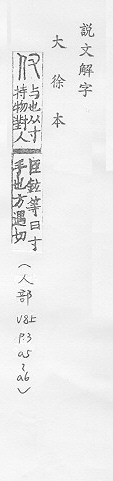 説文解字
大徐本
付
与也从寸
持物對人
臣鉉等曰寸
手也方遇切
(人部
V8上
P.3
a5
~
a6)